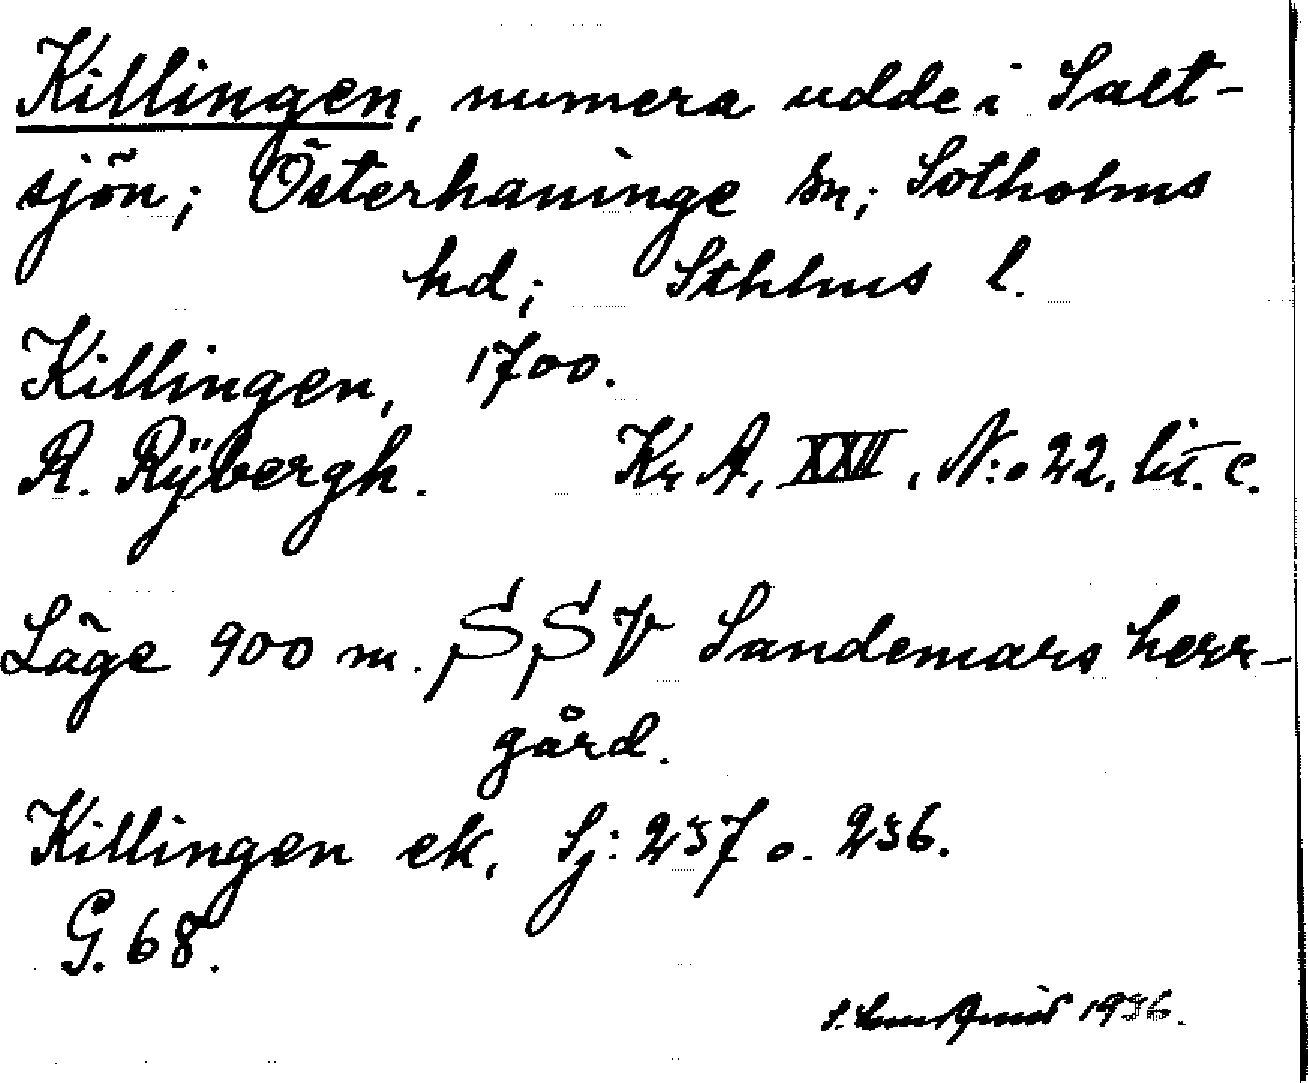 Killingen, numera udde i Salt-
sjön; Österhaninge sn; Sotholms
hd; Sthlms l.
Killingen, 1700.
R. Rÿbergh. Kr A, XXII, N:o 22, lit. c.
Läge 900 m. SSV Sandemars herr-
gård.
Killingen ek. Sj: 237 o. 236.
G. 68.
S. 1936.